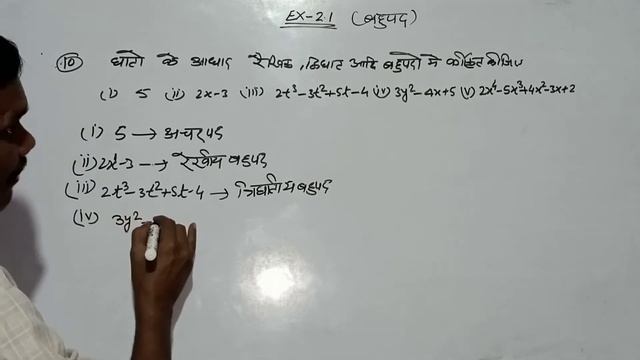 EX-2.1 (बहुपद)
10. घातों के आधार रैखिक, द्विघात आदि बहुपदों में वर्गीकृत कीजिए
(i) 5 (ii) 2x-3 (iii) 2t³-3t²+5t-4 (iv) 3y²-4x+5 (v) 2x⁴-5x³+4x²-3x+2
(i) 5 → अचर पद
(ii) 2x¹-3 → रैखीय बहुपद
(iii) 2t³-3t²+5t-4 → त्रिघातीय बहुपद
(iv) 3y²-